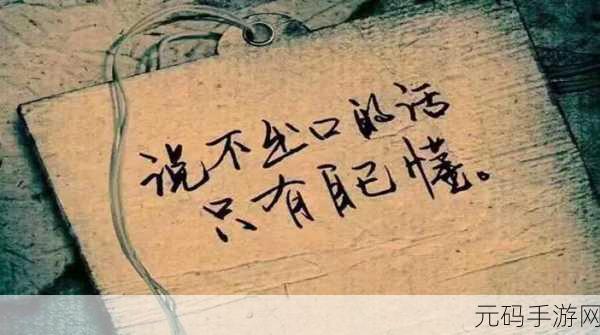 说不出口的话
只有自己懂。
元码手游网